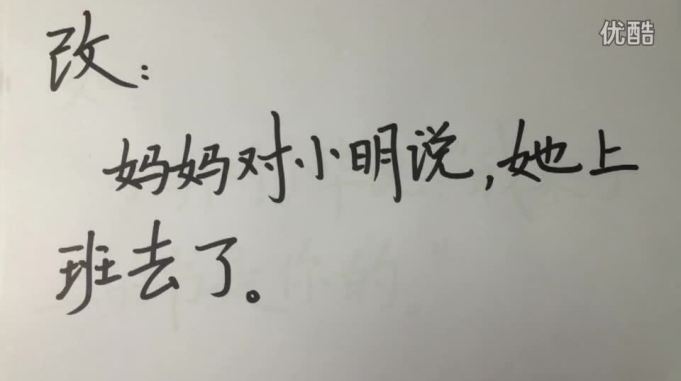 优酷
改：
妈妈对小明说,她上
班去了。